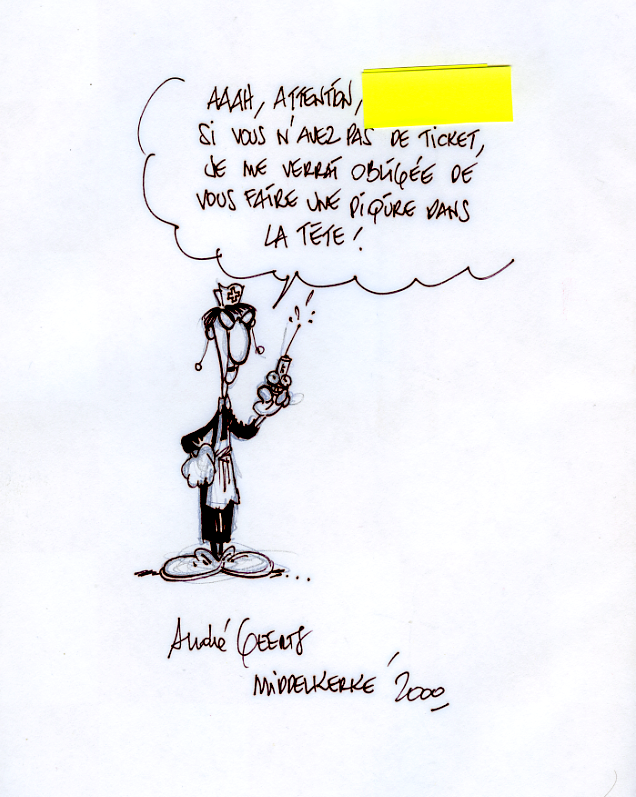 AAAH, ATTENTION,
SI VOUS N'AVEZ PAS DE TICKET,
JE ME VERRAI OBLIGÉE DE
VOUS FAIRE UNE PIQÛRE DANS
LA TÊTE!
André GEERTS
MIDDELKERKE '2000